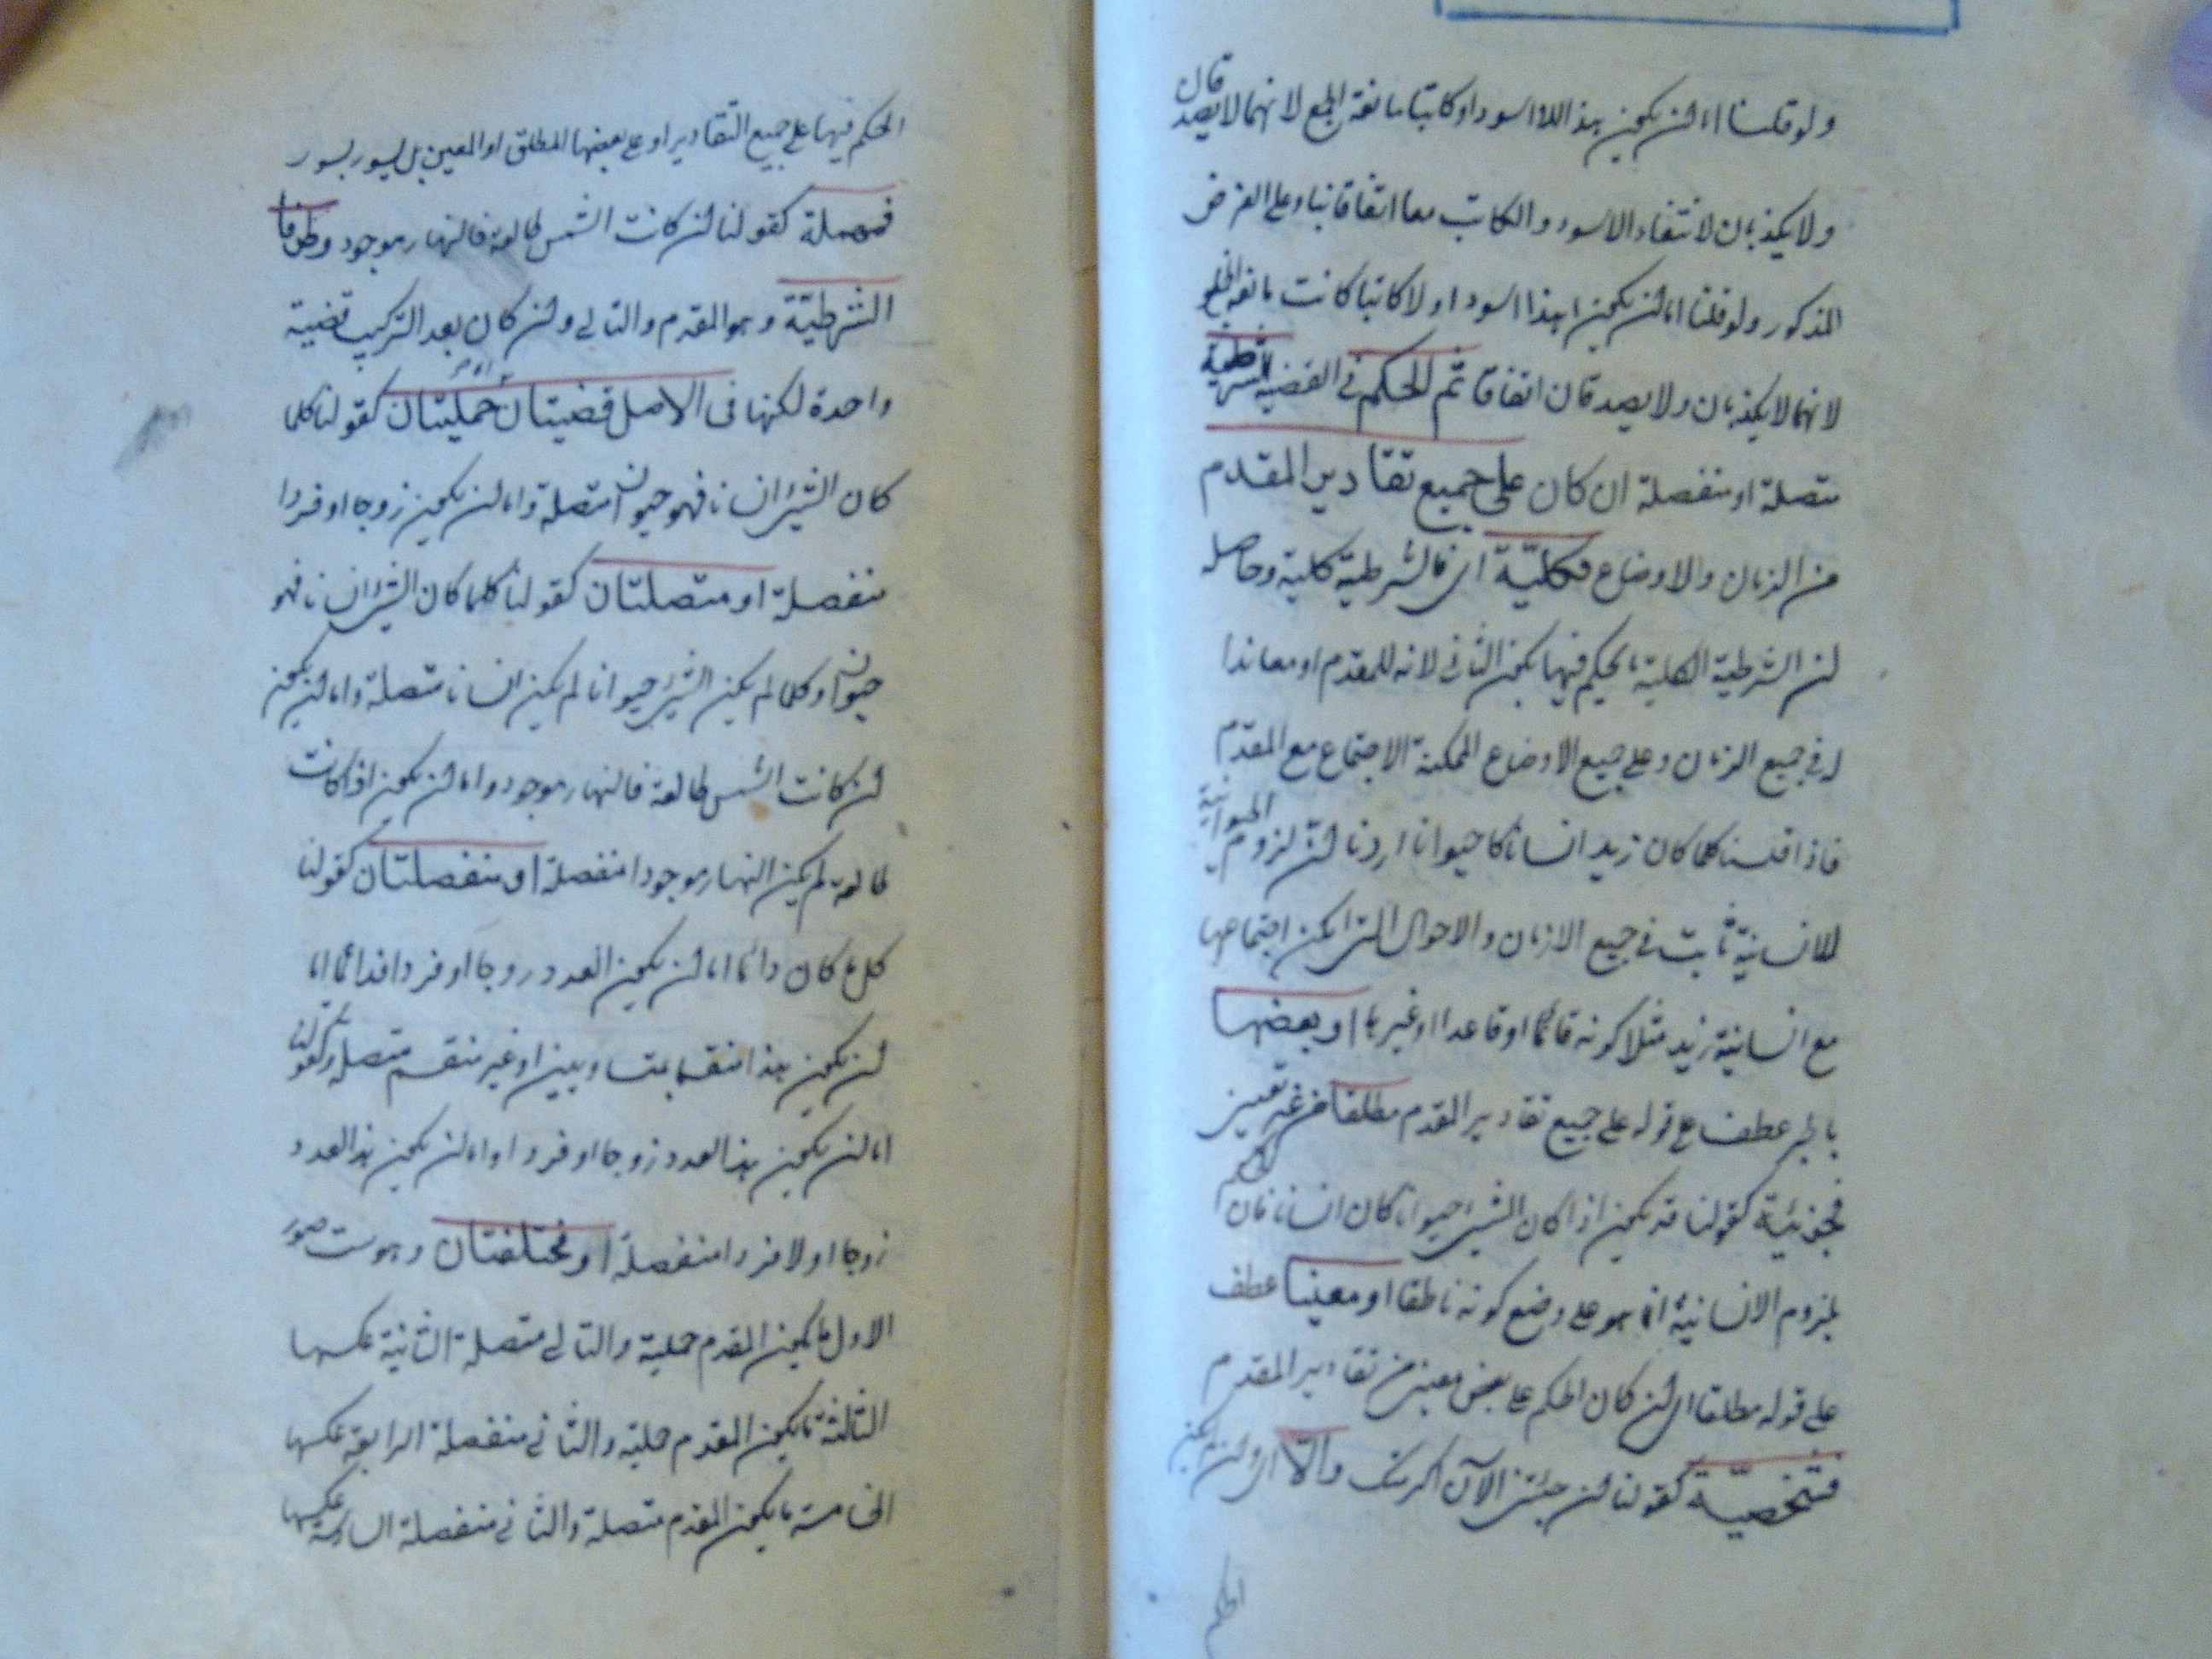 ولو قلنا اما ان يكون هذا اللا اسود او كاتبا مانعة الجمع لانهما لا يصدقان
ولا يكذبان لانتفاء الاسود والكاتب معا اتفاقا بناء على الفرض
المذكور ولو قلنا اما ان يكون هذا اسود او لا كاتبا كانت مانعة الخلو
لانهما لا يكذبان ولا يصدقان اتفاقا ثم الحكم في القضية الشرطية
متصلة او منفصلة ان كان على جميع تقادير المقدم
من الزمان والاوضاع فكلية اي فالشرطية كلية وحاصله
ان الشرطية الكلية ما يحكم فيها بكون الثاني لازما للمقدم او معاندا
له في جميع الزمان وعلى جميع الاوضاع الممكنة الاجتماع مع المقدم
فاذا قلنا كلما كان زيد انسانا كان حيوانا اردنا ان لزوم الحيوانية
للانسانية ثابت في جميع الازمان والاحوال التي امكن اجتماعها
مع انسانية زيد مثلا كونه قائما او قاعدا او غيرها او بعضها
بالجر عطف على قوله على جميع تقادير المقدم مطلقا من غير تعيين
فجزئية كقولنا قد يكون اذا كان الشيء حيوانا كان انسانا فان الحكم
بلزوم الانسانية انما هو على وضع كونه ناطقا او معينا عطف
على قوله مطلقا اي ان كان الحكم على بعض معين من تقادير المقدم
فشخصية كقولنا ان جئتني الآن اكرمتك والا اي وان لم يكن
الحكم
الحكم فيها على جميع التقادير او على بعضها المطلق او المعين بل بسور
فمهملة كقولنا ان كانت الشمس طالعة فالنهار موجود وطرفا
الشرطية وهو المقدم والتالي وان كان بعد التركيب قضية
واحدة لكنها في الاصل قضيتان حمليتان كقولنا كلما
كان الشيء انسانا فهو حيوان متصلة واما ان يكون زوجا او فردا
منفصلة او متصلتان كقولنا كلما كان الشيء انسانا فهو
حيوان وكلما لم يكن الشيء حيوانا لم يكن انسانا متصلة واما ان يكون
ان كانت الشمس طالعة فالنهار موجود واما ان يكون اذا كانت
طالعة لم يكن النهار موجودا منفصلة او منفصلتان كقولنا
كلما كان دائما اما ان يكون العدد زوجا او فردا فدائما اما
ان يكون هذا منقسما بمتساويين او غير منقسم متصلة وكقولنا
اما ان يكون هذا العدد زوجا او فردا واما ان يكون هذا العدد
زوجا او لا فردا منفصلة او مختلفتان وهو ست صور
الاول ما يكون المقدم حملية والتالي متصلة الثانية عكسها
الثالثة ما يكون المقدم حملية والثاني منفصلة الرابعة عكسها
الخامسة ما يكون المقدم متصلة والثاني منفصلة السادسة عكسها